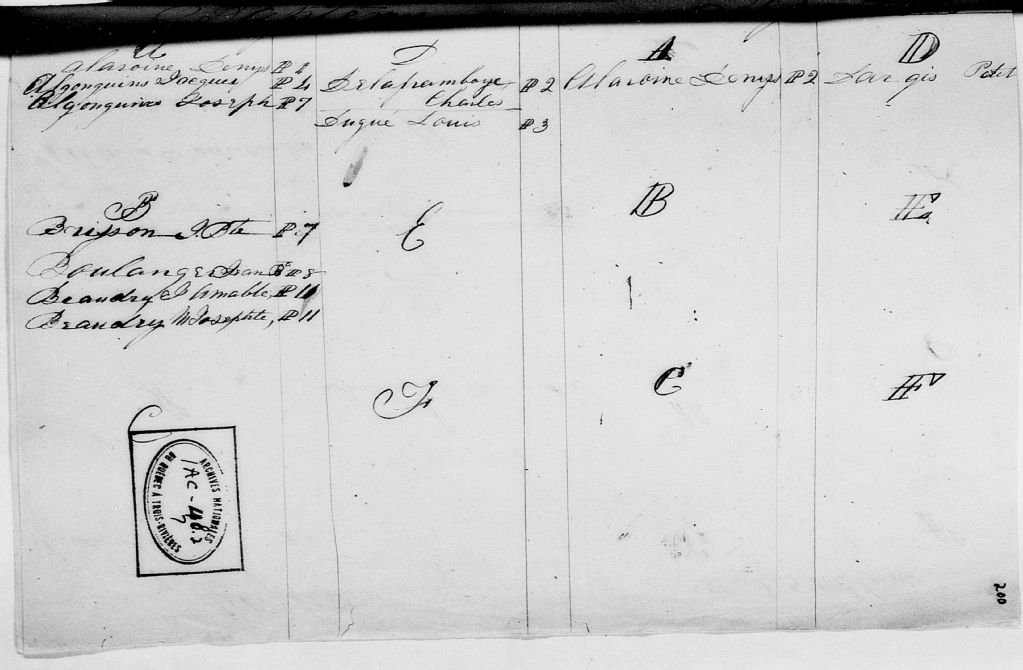 A
Alavoine Denys P 2
Algonquins Jacques P 4
Algonquins Joseph P 7
B
Brisson J. Bte P. 7
Boulanger Jean Bte P 8
Beaudry J Amable, P 10
Beaudry M Josephte, P 11
C
ARCHIVES NATIONALES
DU QUÉBEC À TROIS-RIVIÈRES
D
Delaframboye P 2
Charles
Dugue Louis P 3
E
F
A
Alavoine Denys P 2
B
C
D
E
F
200